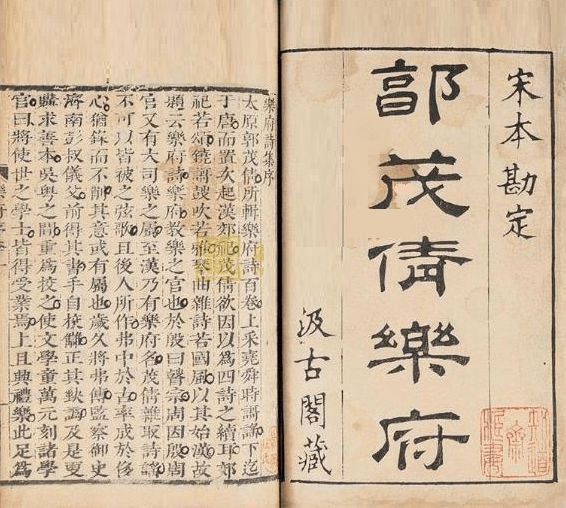 宋本勘定
郭茂倩樂府
汲古閣藏
樂府詩集序
太原郭茂倩所輯樂府詩百卷上采堯舜時謌謠下迄
于唐而置次起漢郊祀茂倩欲因以爲四詩之續耳郊
祀若頌鐃謌鼓吹若雅琴曲雜詩若國風以其始漢故
題云樂府詩樂府教樂之官也於殷曰瞽宗周因殷周
官又有大司樂之屬至漢乃有樂府名茂倩雜取詩謠
不可以皆被之弦歌且後人所作弗中於古率成於後
心猶錄而不削其意或有屬也歲久將弗傳監察御史
濟南彭叔儀父前得其書手自校讎正其缺譌及是更
購求善本吳粤之間重爲校之使文學童萬元刻諸學
官曰將使世之學士皆得受業焉上且興禮樂此足爲